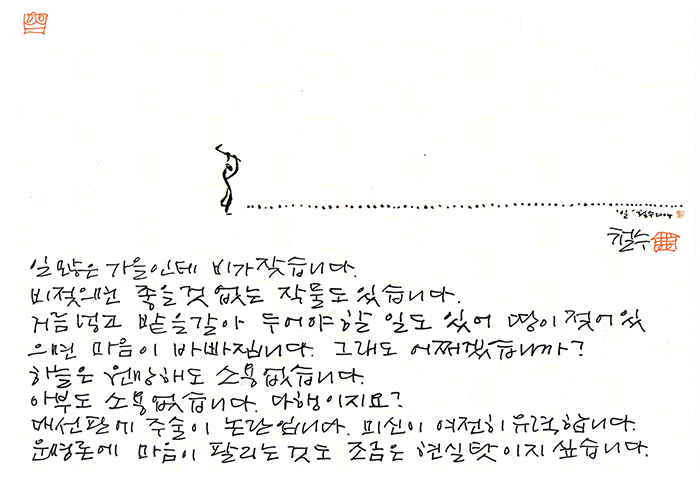 '일' 철수 2004
철수
일 많은 가을인데 비가 잦습니다.
비 젖으면 좋을 것 없는 작물도 있습니다.
거름 넣고 밭을 갈아 두어야 할 일도 있어 땅이 젖어 있
으면 마음이 바빠집니다. 그래도 어쩌겠습니까?
하늘은 원망해도 소용없습니다.
아부도 소용없습니다. 다행이지요?
대선판에 주술이 논란입니다. 미신이 여전히 유력합니다.
운명론에 마음이 팔리는 것도 조금은 현실 탓이지 싶습니다.